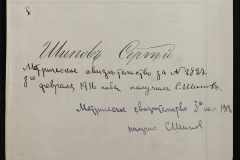 Шиповъ Сергѣй
Метрическое свидѣтельство за № 2823
февраля 1916 года получилъ С. Шиповъ.
Метрическое свидетельство
получил С Шипов